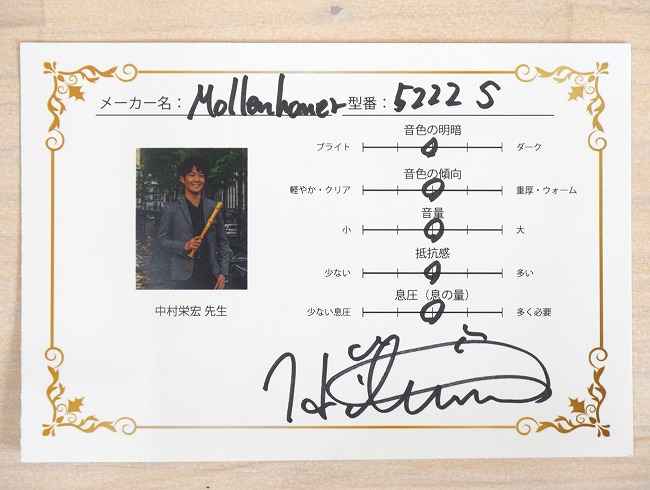 メーカー名： Mollenhauer 型番： 5222 S
音色の明暗
ブライト ダーク
音色の傾向
軽やか・クリア 重厚・ウォーム
音量
小 大
抵抗感
少ない 多い
息圧（息の量）
少ない息圧 多く必要
中村栄宏 先生